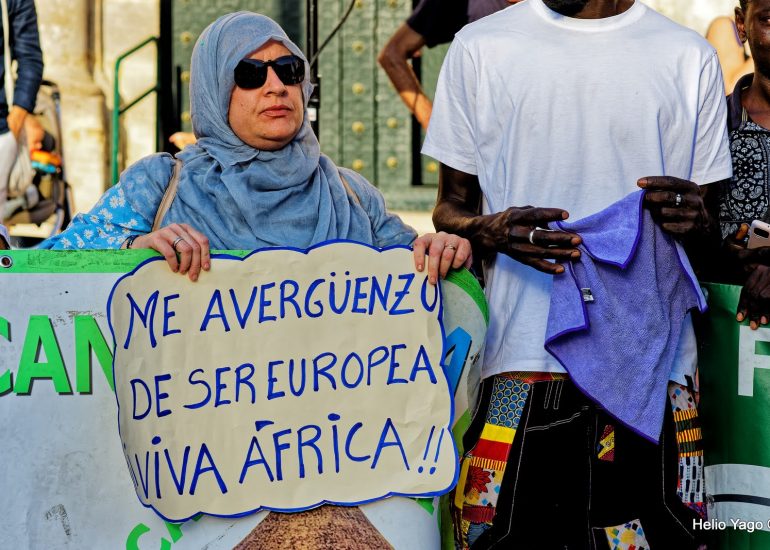 ME AVERGÜENZO
DE SER EUROPEA
¡VIVA ÁFRICA!!
CAN
F
Helio Yago